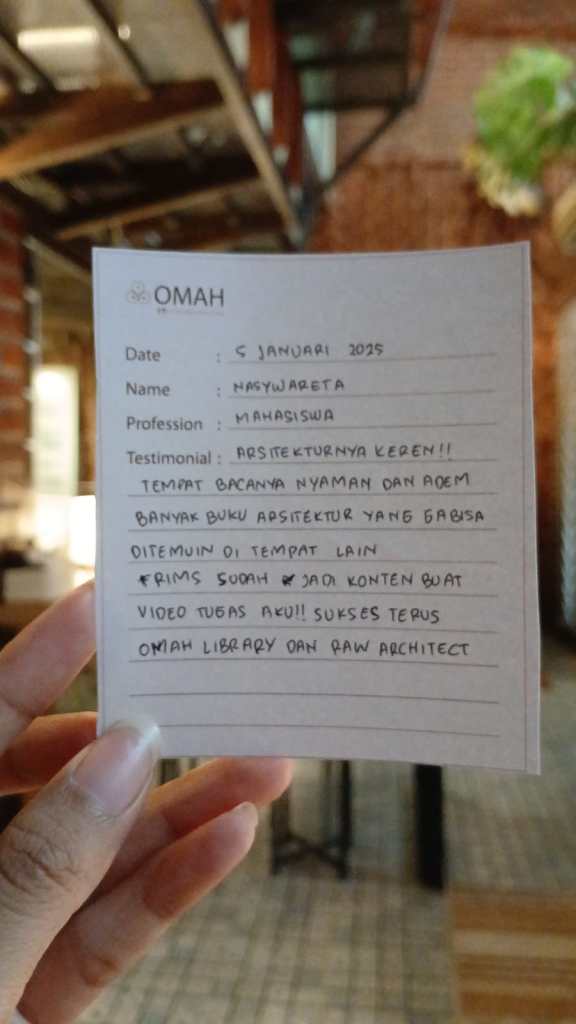 OMAH
Date : 5 JANUARI 2025
Name : NASYWARETA
Profession : MAHASISWA
Testimonial : ARSITEKTURNYA KEREN!!
TEMPAT BACANYA NYAMAN DAN ADEM
BANYAK BUKU ARSITEKTUR YANG GABISA
DITEMUIN DI TEMPAT LAIN
TRIMS SUDAH JADI KONTEN BUAT
VIDEO TUGAS AKU!! SUKSES TERUS
OMAH LIBRARY DAN RAW ARCHITECT